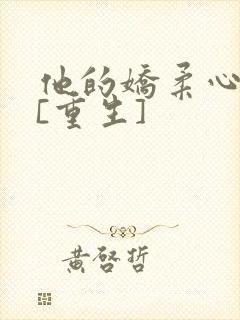 他的嬌柔心
[重生]
黄啓哲